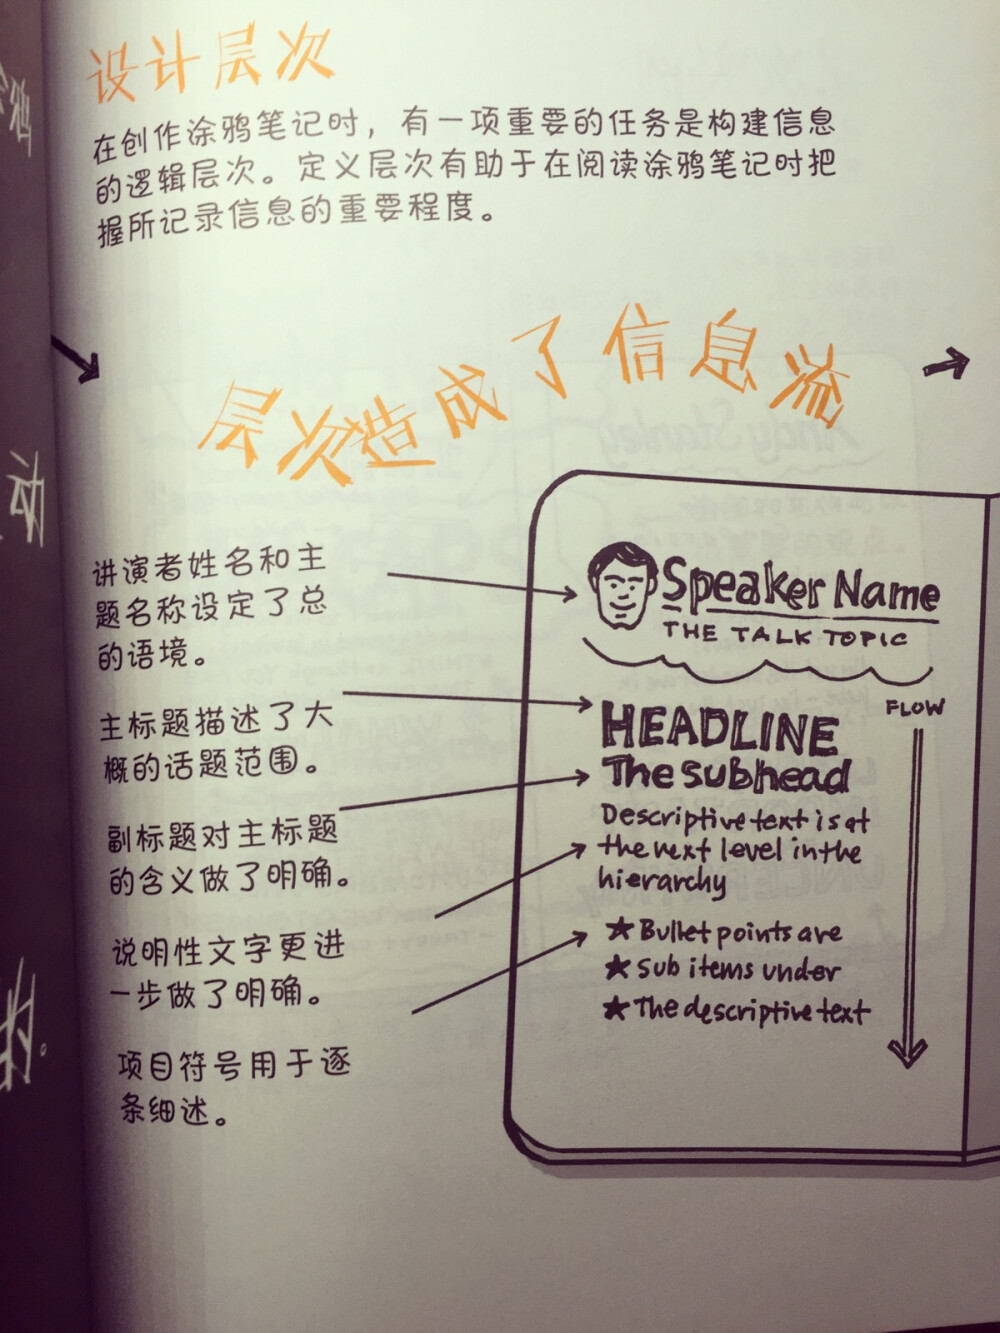 设计层次
在创作涂鸦笔记时，有一项重要的任务是构建信息
的逻辑层次。定义层次有助于在阅读涂鸦笔记时把
握所记录信息的重要程度。
层次造成了信息流
讲演者姓名和主
题名称设定了总
的语境。
主标题描述了大
概的话题范围。
副标题对主标题
的含义做了明确。
说明性文字更进
一步做了明确。
项目符号用于逐
条细述。
Speaker Name
THE TALK TOPIC
FLOW
HEADLINE
The subhead
Descriptive text is at
the next level in the
hierarchy
★ Bullet points are
★ Sub items under
★ The descriptive text